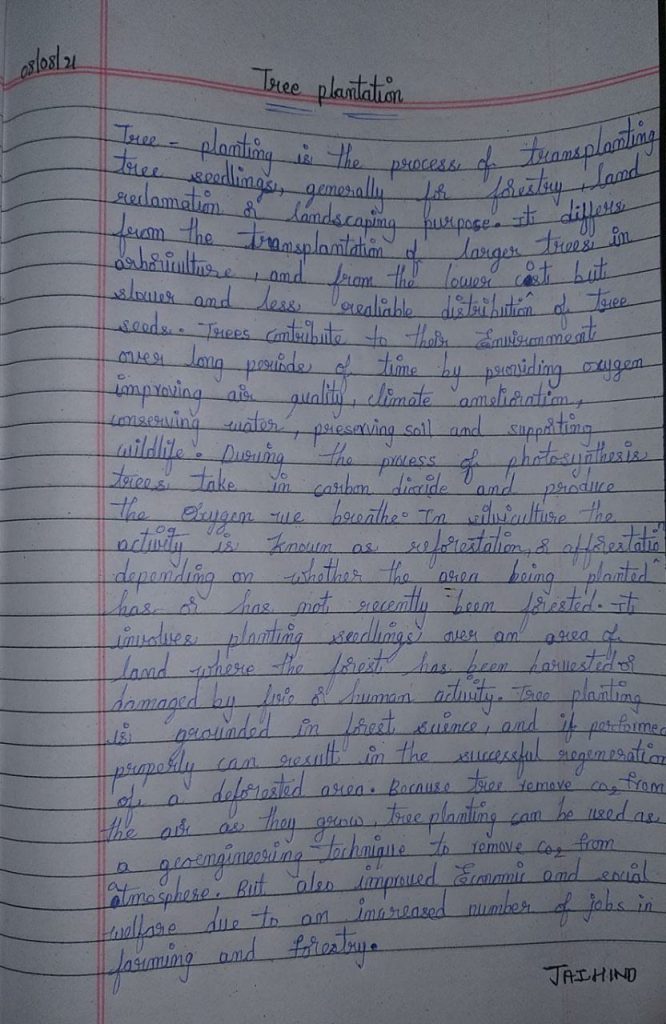 08/08/21
Tree plantation
Tree - planting is the process of transplanting
tree seedlings, generally for forestry, land
reclamation & landscaping purpose. It differs
from the transplantation of larger trees in
arboriculture, and from the lower cost but
slower and less realiable distribution of tree
seeds. Trees contribute to their Environment
over long periods of time by providing oxygen
improving air quality, climate amelioration,
conserving water, preserving soil and supporting
wildlife. During the process of photosynthesis
trees take in carbon dioxide and produce
the Oxygen we breathe. In silviculture the
activity is known as reforestation, & afforestatio
depending on whether the area being planted
has or has not recently been forested. It
involves planting seedlings over an area of
land where the forest has been harvested or
damaged by fire or human activity. Tree planting
is grounded in forest science, and if performed
properly can result in the successful regeneration
of a deforested area. Because tree remove co₂ from
the air as they grow, tree planting can be used as
a geoengineering technique to remove co₂ from
atmosphere. But also improved Economic and social
welfare due to an increased number of jobs in
farming and forestry.
JAIHIND